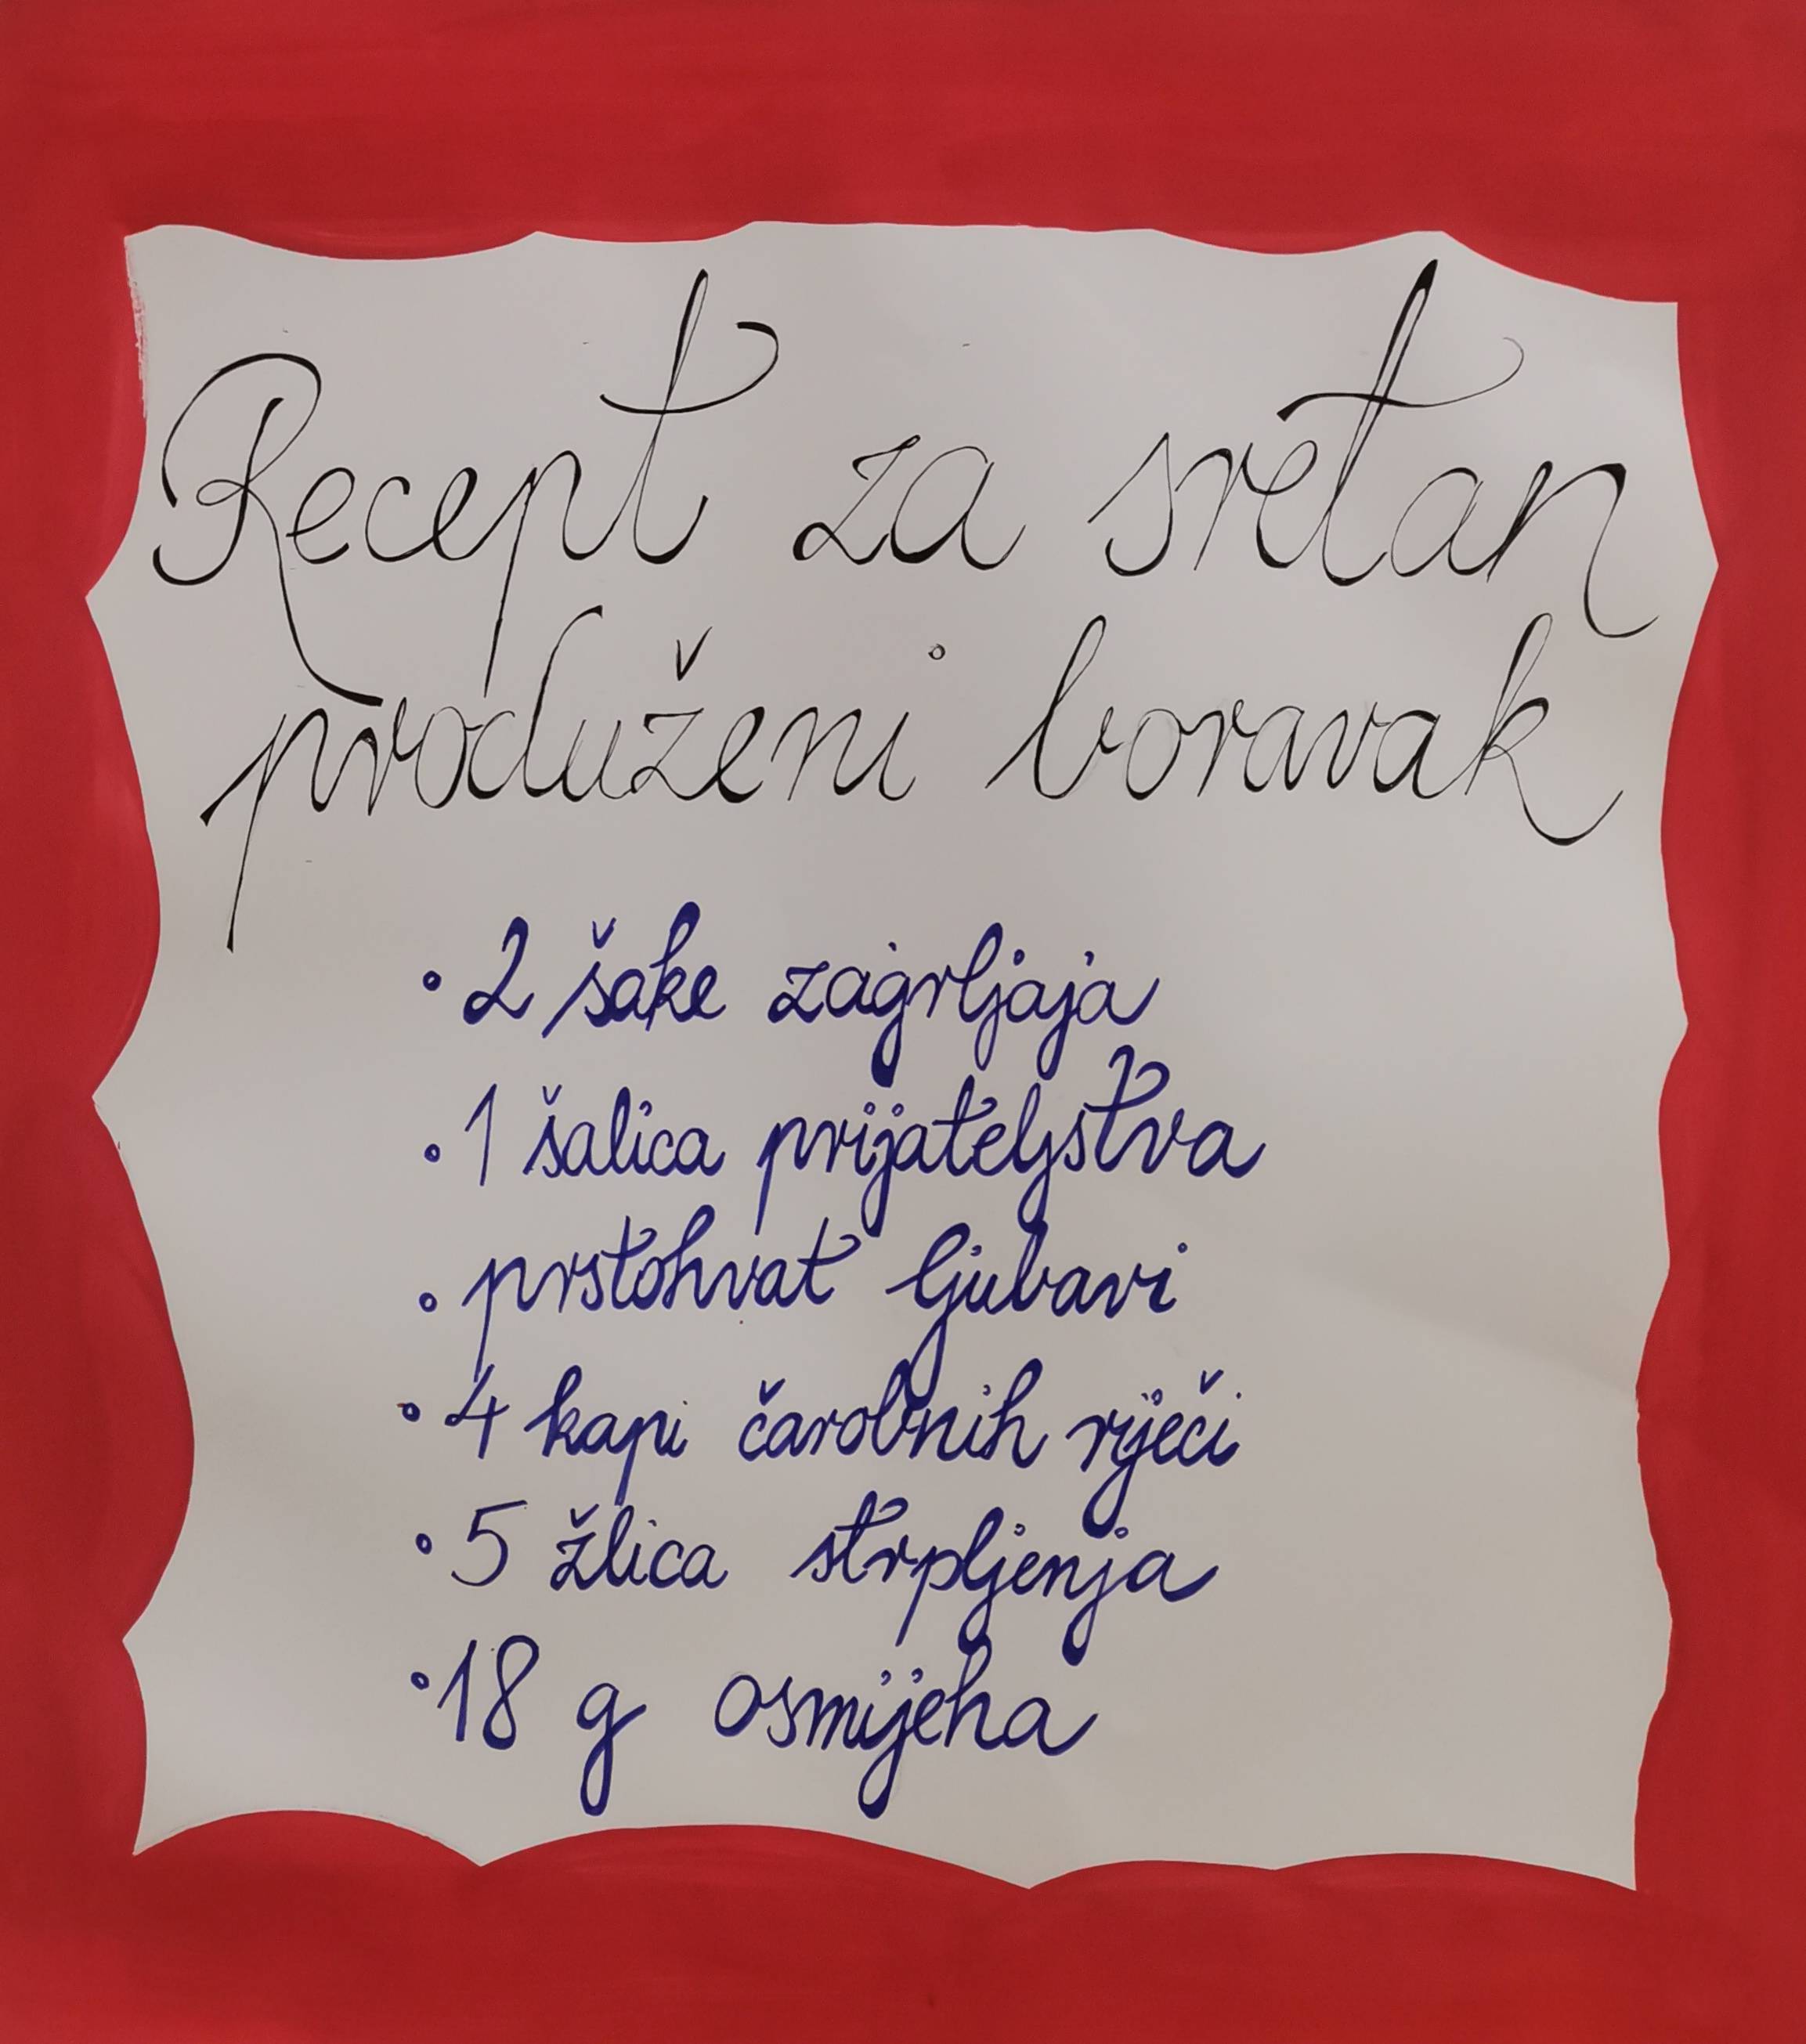 Recept za sretan
produženi boravak
• 2 šake zagrljaja
• 1 šalica prijateljstva
• prstohvat ljubavi
• 4 kapi čarobnih riječi
• 5 žlica strpljenja
• 18 g osmijeha